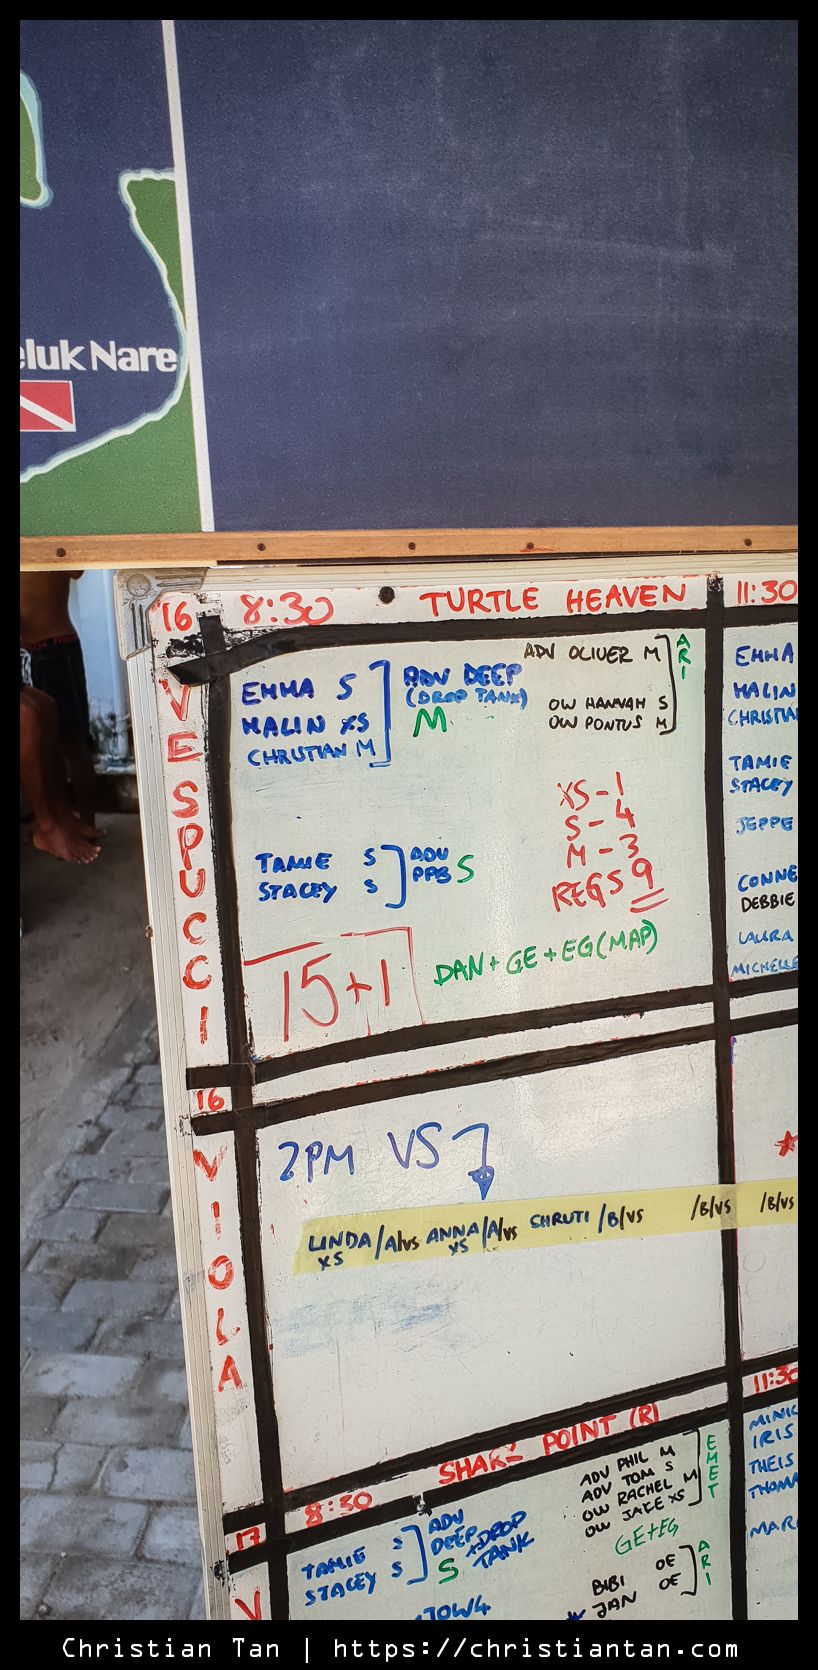 eluk Nare
16 8:30 TURTLE HEAVEN 11:30
VESPUCCI
EMMA S
MALIN XS
CHRISTIAN M
ADV DEEP
(DROP TANK)
M
ADV OLIVER M
OW HANNAH S
OW PONTUS M
ARI
TAMIE S
STACEY S
ADV
PPB S
XS - 1
S - 4
M - 3
REGS 9
15+1
DAN + GE + EG (MAP)
EMMA
MALIN
CHRISTIAN
TAMIE
STACEY
JEPPE
CONNE
DEBBIE
LAURA
MICHELLE
16
VIOLA
2PM VS
LINDA /A/VS ANNA /A/VS SHRUTI /B/VS /B/VS /B/VS
XS XS
17 8:30 SHARK POINT (R) 11:30
V
TAMIE S
STACEY S
ADV
DEEP
+DROP
TANK
S
ADV PHIL M
ADV TOM S
OW RACHEL M
OW JAKE XS
EMET
GE+EG
BIBI OE
JAN OE
ARI
IRIS
THEIS
THOMA
MAR
Christian Tan | https://christiantan.com